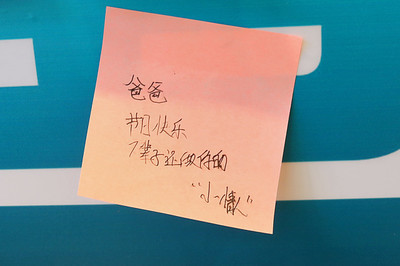 爸爸
节日快乐
下辈子还做你的
"小情人"